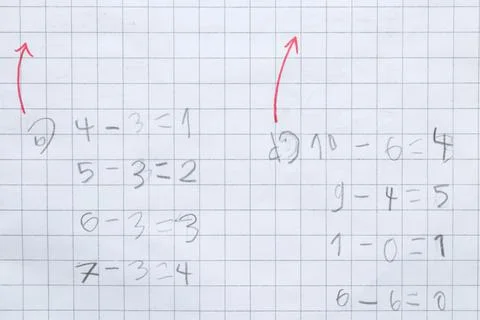 b) 4 - 3 = 1
5 - 3 = 2
6 - 3 = 3
7 - 3 = 4
d) 10 - 6 = 4
9 - 4 = 5
1 - 0 = 1
6 - 6 = 0